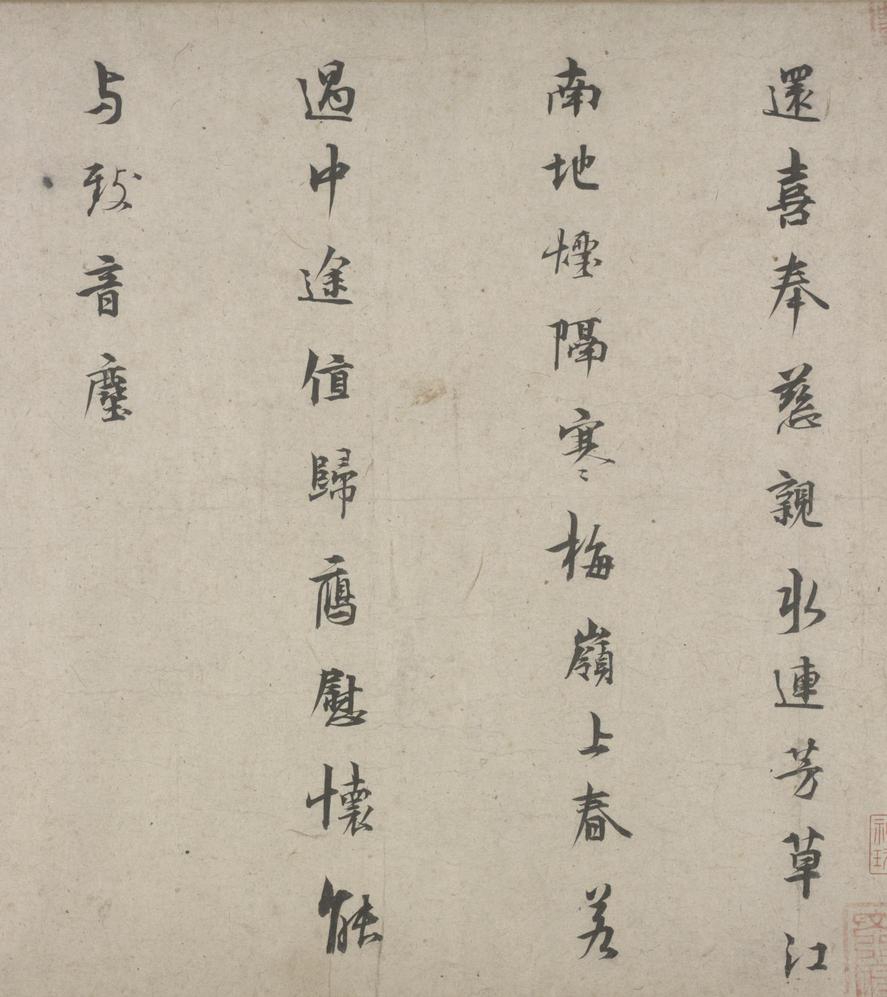 還喜奉慈親水連芳草江
南地煙隔寒梅嶺上春若
遇中途值歸鴈慰懷能
与致音塵